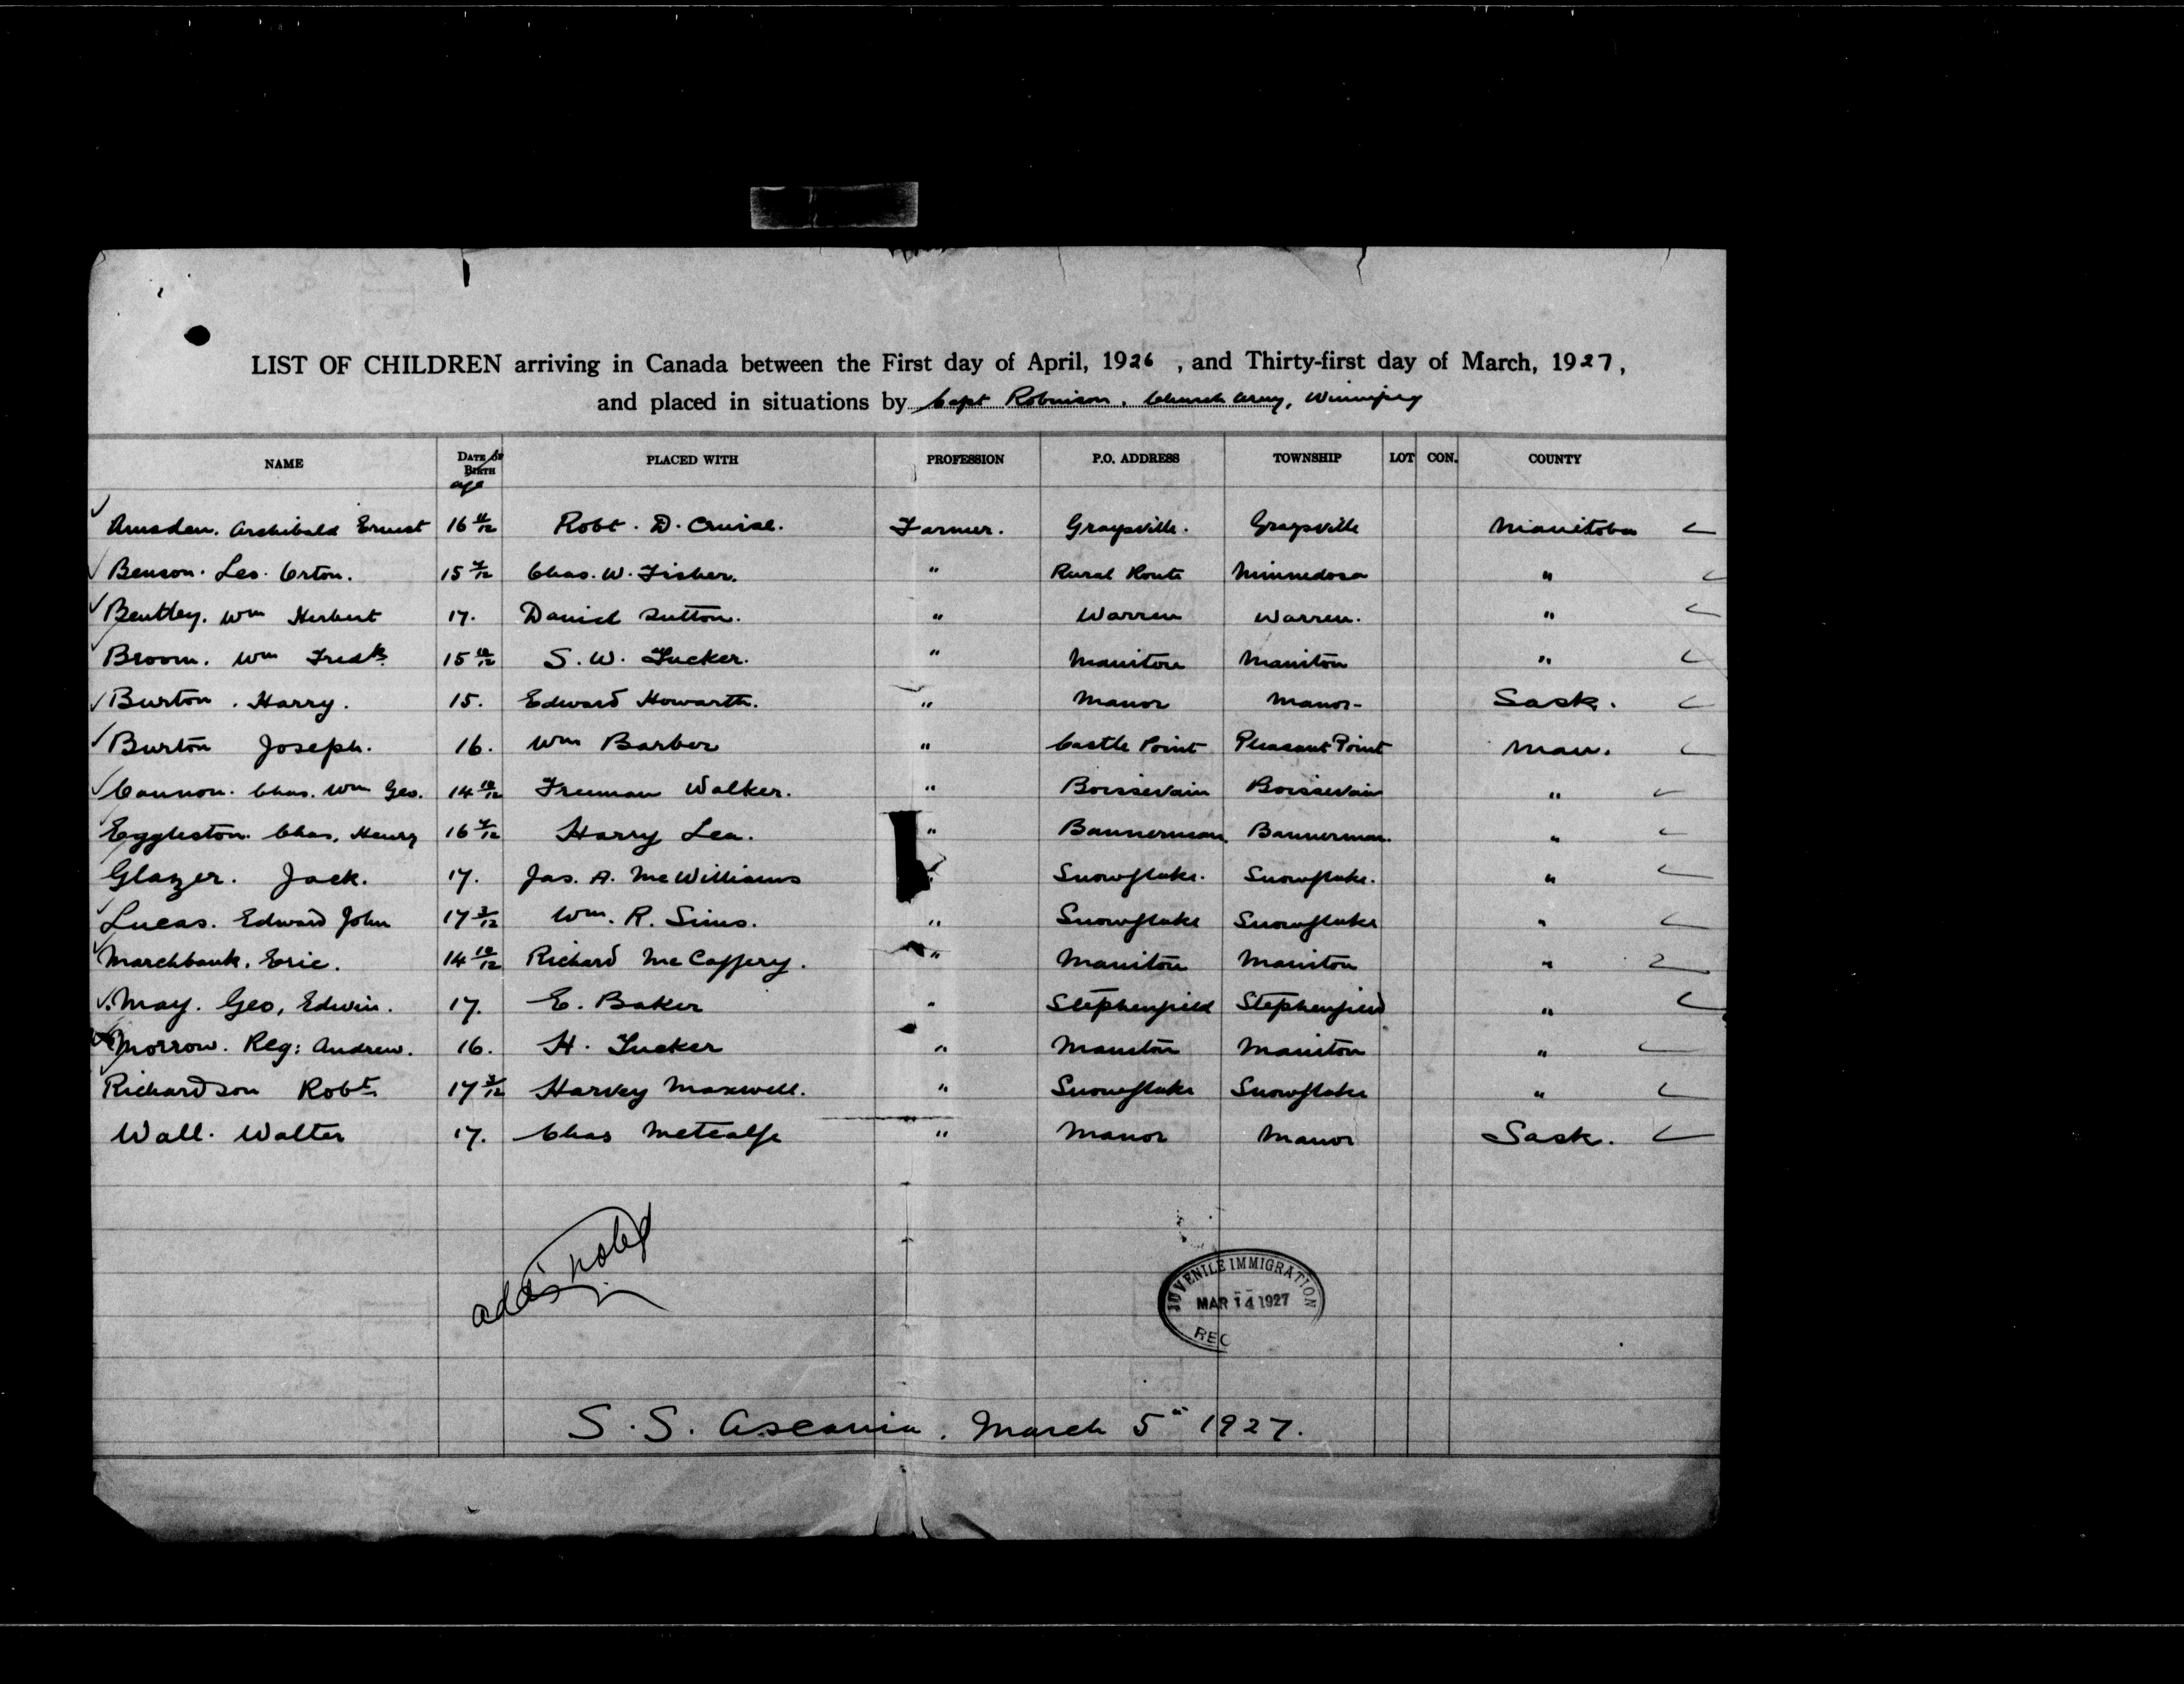 LIST OF CHILDREN arriving in Canada between the First day of April, 1926, and Thirty-first day of March, 1927,
and placed in situations by Capt Robinson, Church Army, Winnipeg
NAME DATE OF BIRTH age PLACED WITH PROFESSION P.O. ADDRESS TOWNSHIP LOT CON. COUNTY
Amsden. Archibald Ernest 16 11/12 Robt. D. Cruise. Farmer. Graysville. Graysville Manitoba
Benson. Leo. Orton. 15 Chas. W. Fisher. " Rural Route Minnedosa "
Bentley. Wm Herbert 17. Daniel Sutton. " Warren Warren. "
Broom. Wm Fredk 15 10/12 S. W. Tucker. " Manitou Manitou "
Burton. Harry. 15. Edward Howarth. " Manor Manor- Sask.
Burton Joseph. 16. Wm Barber " Castle Point Pleasant Point Man.
Cannon. Chas. Wm Geo. 14 10/12 Freeman Walker. " Boissevain Boissevain "
Eggleston. Chas. Henry 16 Harry Lea. " Bannerman Bannerman. "
Glazer. Jack. 17. Jas. A. McWilliams " Snowflake. Snowflake. "
Lucas. Edward John 17 3/12 Wm. R. Sims. " Snowflake Snowflake "
Marchbank. Eric. 14 10/12 Richard McCaffery. " Manitou Manitou "
May. Geo. Edwin. 17. E. Baker " Stephenfield Stephenfield "
Morrow. Reg: Andrew. 16. H. Tucker " Manitou Manitou "
Richardson Robt 17 Harvey Maxwell. " Snowflake Snowflake "
Wall. Walter 17. Chas Metcalfe " Manor Manor Sask.
noted
JUVENILE IMMIGRATION
MAR 14 1927
REC
S.S. Ascania. March 5" 1927.